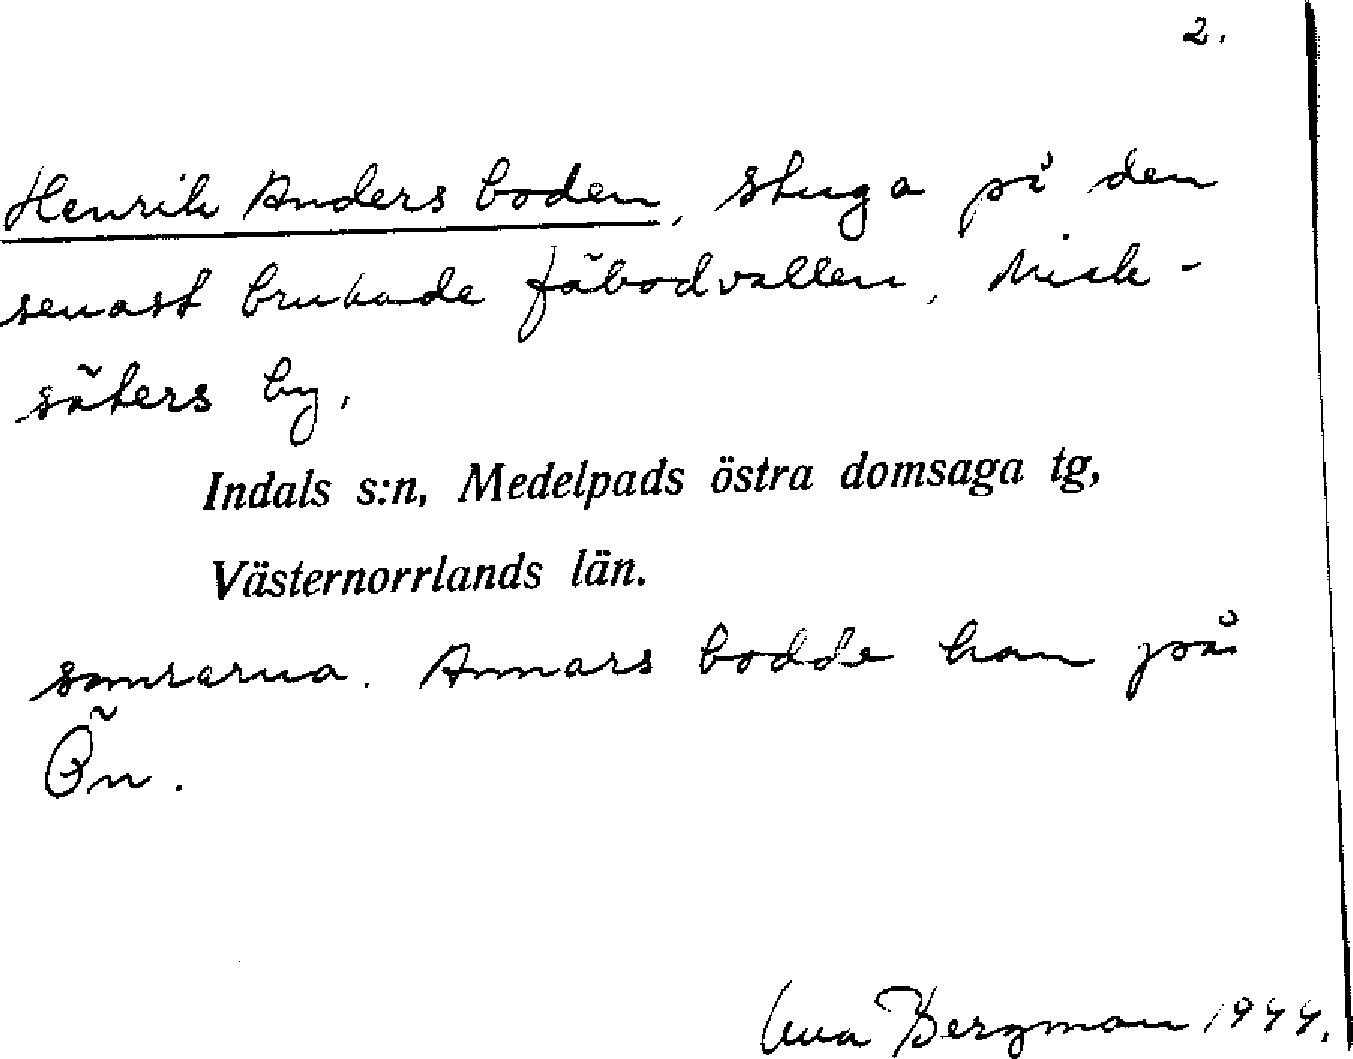 2.
Henrik Anders boden, stuga på den
senast brukade fäbodvallen,
säters by.
Indals s:n, Medelpads östra domsaga tg,
Västernorrlands län.
somrarna. Annars bodde han på
Ön.
Bergman 1944.